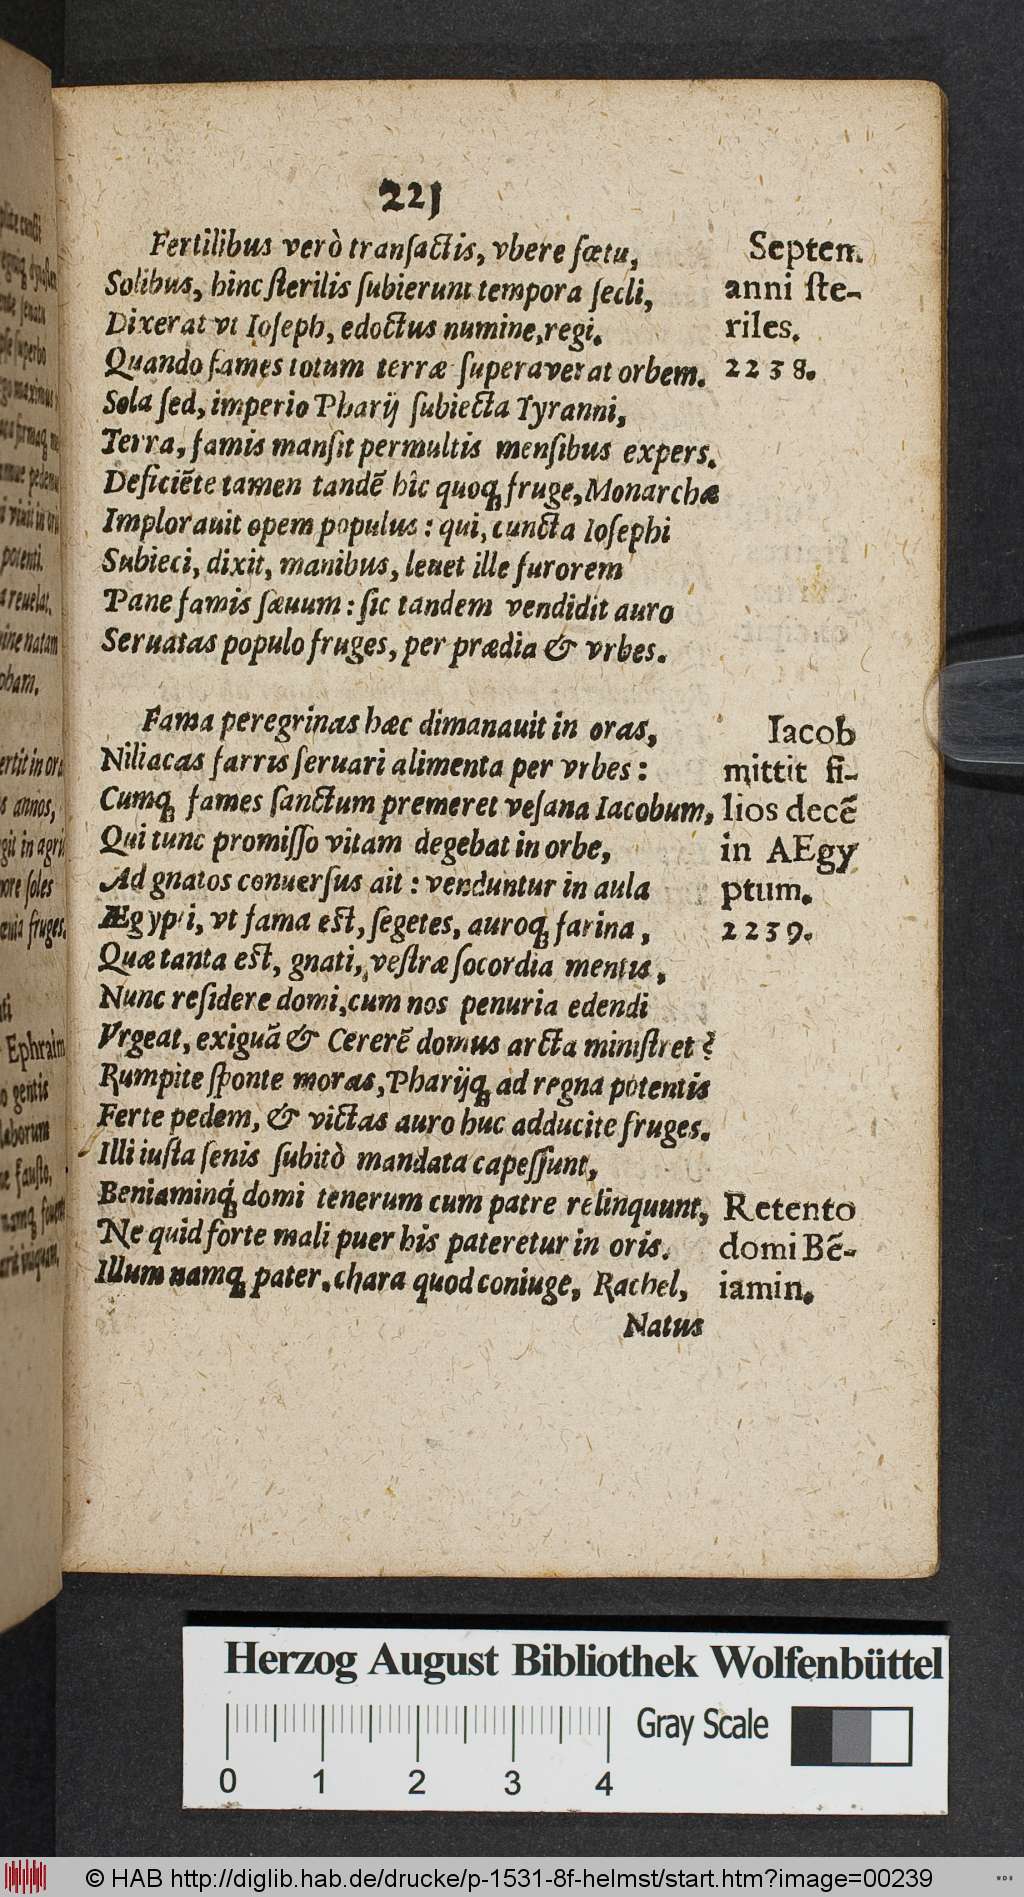 221
Fertilibus verò tranſactis, vbere fœtu,
Solibus, hinc ſterilis ſubierunt tempora ſecli,
Dixerat vt Ioſeph, edoctus numine, regi.
Quando fames totum terræ ſuperaverat orbem.
Sola ſed, imperio Pharij ſubiecta Tyranni,
Terra, famis manſit permultis menſibus expers.
Deficiẽte tamen tandẽ hîc quoq; fruge, Monarchæ
Implorauit opem populus: qui, cuncta Ioſephi
Subieci, dixit, manibus, leuet ille furorem
Pane famis ſæuum: ſic tandem vendidit auro
Seruatas populo fruges, per prædia & vrbes.
Septem
anni ſte-
riles.
2238.
Fama peregrinas hæc dimanauit in oras,
Niliacas farris ſeruari alimenta per vrbes:
Cumq; fames ſanctum premeret veſana Iacobum,
Qui tunc promiſſo vitam degebat in orbe,
Ad gnatos conuerſus ait: venduntur in aula
Ægypti, vt fama eſt, ſegetes, auroq; farina,
Quæ tanta eſt, gnati, veſtræ ſocordia mentis,
Nunc reſidere domi, cum nos penuria edendi
Vrgeat, exiguã & Cererẽ domus arcta miniſtret?
Rumpite ſponte moras, Pharijq; ad regna potentis
Ferte pedem, & victas auro huc adducite fruges.
Illi iuſta ſenis ſubitò mandata capeſſunt,
Beniaminq́; domi tenerum cum patre relinquunt,
Ne quid forte mali puer his pateretur in oris.
Illum namq; pater, chara quod coniuge, Rachel,
Natus
Iacob
mittit fi-
lios decẽ
in AEgy
ptum.
2239.
Retento
domi Bẽ-
iamin.
potenti.
a reuelat,
ine natam
obam.
s annos,
git in agris
ore ſoles
fruges.
Ephraim
o gentis
laborum
Herzog August Bibliothek Wolfenbüttel
0 1 2 3 4
Gray Scale
© HAB http://diglib.hab.de/drucke/p-1531-8f-helmst/start.htm?image=00239